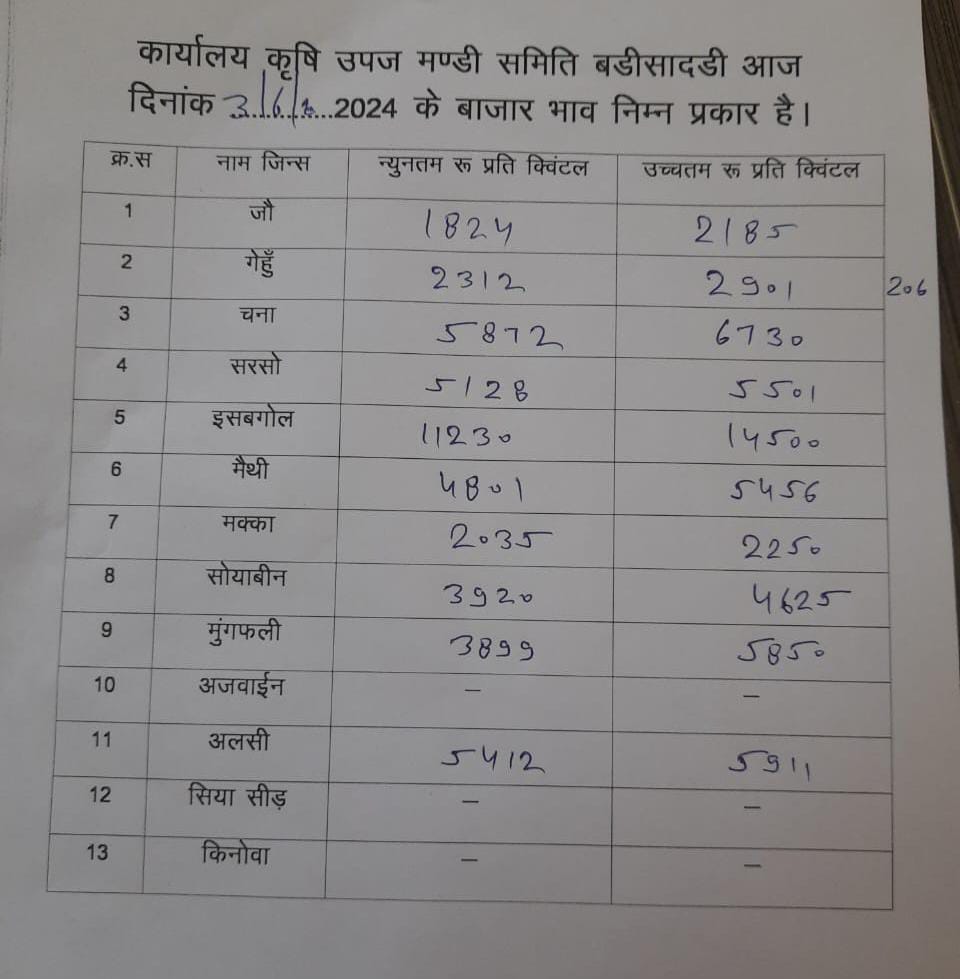 कार्यालय कृषि उपज मण्डी समिति बडीसादडी आज
दिनांक 3/6/2024 के बाजार भाव निम्न प्रकार है।
क्र.स नाम जिन्स न्युनतम रू प्रति क्विंटल उच्चतम रू प्रति क्विंटल
1 जौ 1824 2185
2 गेहुँ 2312 2901 206
3 चना 5872 6730
4 सरसो 5128 5501
5 इसबगोल 11230 14500
6 मैथी 4801 5456
7 मक्का 2035 2250
8 सोयाबीन 3920 4625
9 मुंगफली 3899 5850
10 अजवाईन – –
11 अलसी 5412 5911
12 सिया सीड़ – –
13 किनोवा – –